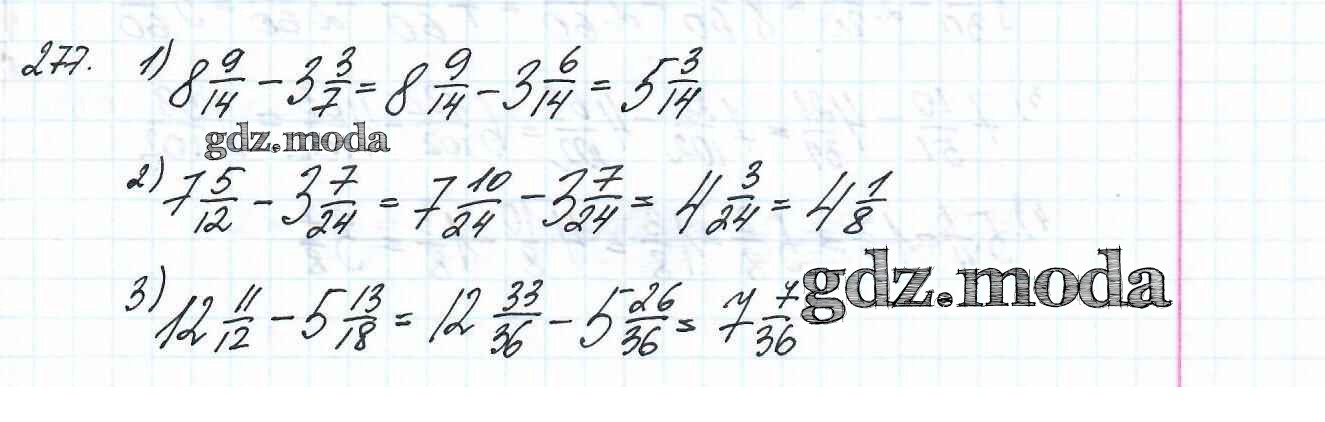 277. 1) 8 9/14 - 3 3/7 = 8 9/14 - 3 6/14 = 5 3/14
gdz.moda
2) 7 5/12 - 3 7/24 = 7 10/24 - 3 7/24 = 4 3/24 = 4 1/8
gdz.moda
3) 12 11/12 - 5 13/18 = 12 33/36 - 5 26/36 = 7 7/36